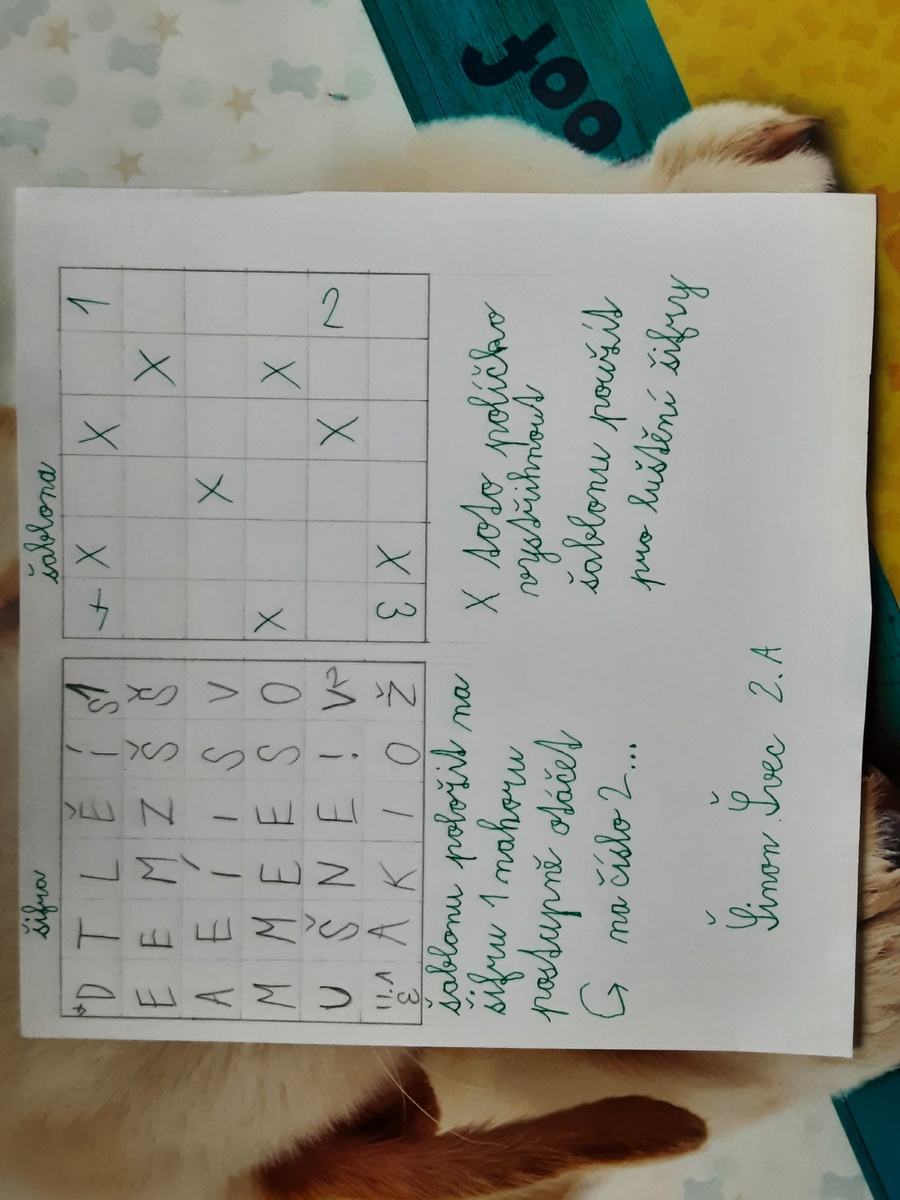 šifra
D T L Ě Í S 1
E E M Z Š Š
A E Í I S V
M M E E S O
U Š N E ! V 2
II.A 3 A K I O Ž
šablona
+ X X 1
X
X
X X
X 2
3 X
šablonu položit na
šifru 1 nahoru
postupně otáčet
↪ na číslo 2...
X toto políčko
vystřihnout
šablonu použít
pro luštění šifry
Šimon Švec 2.A